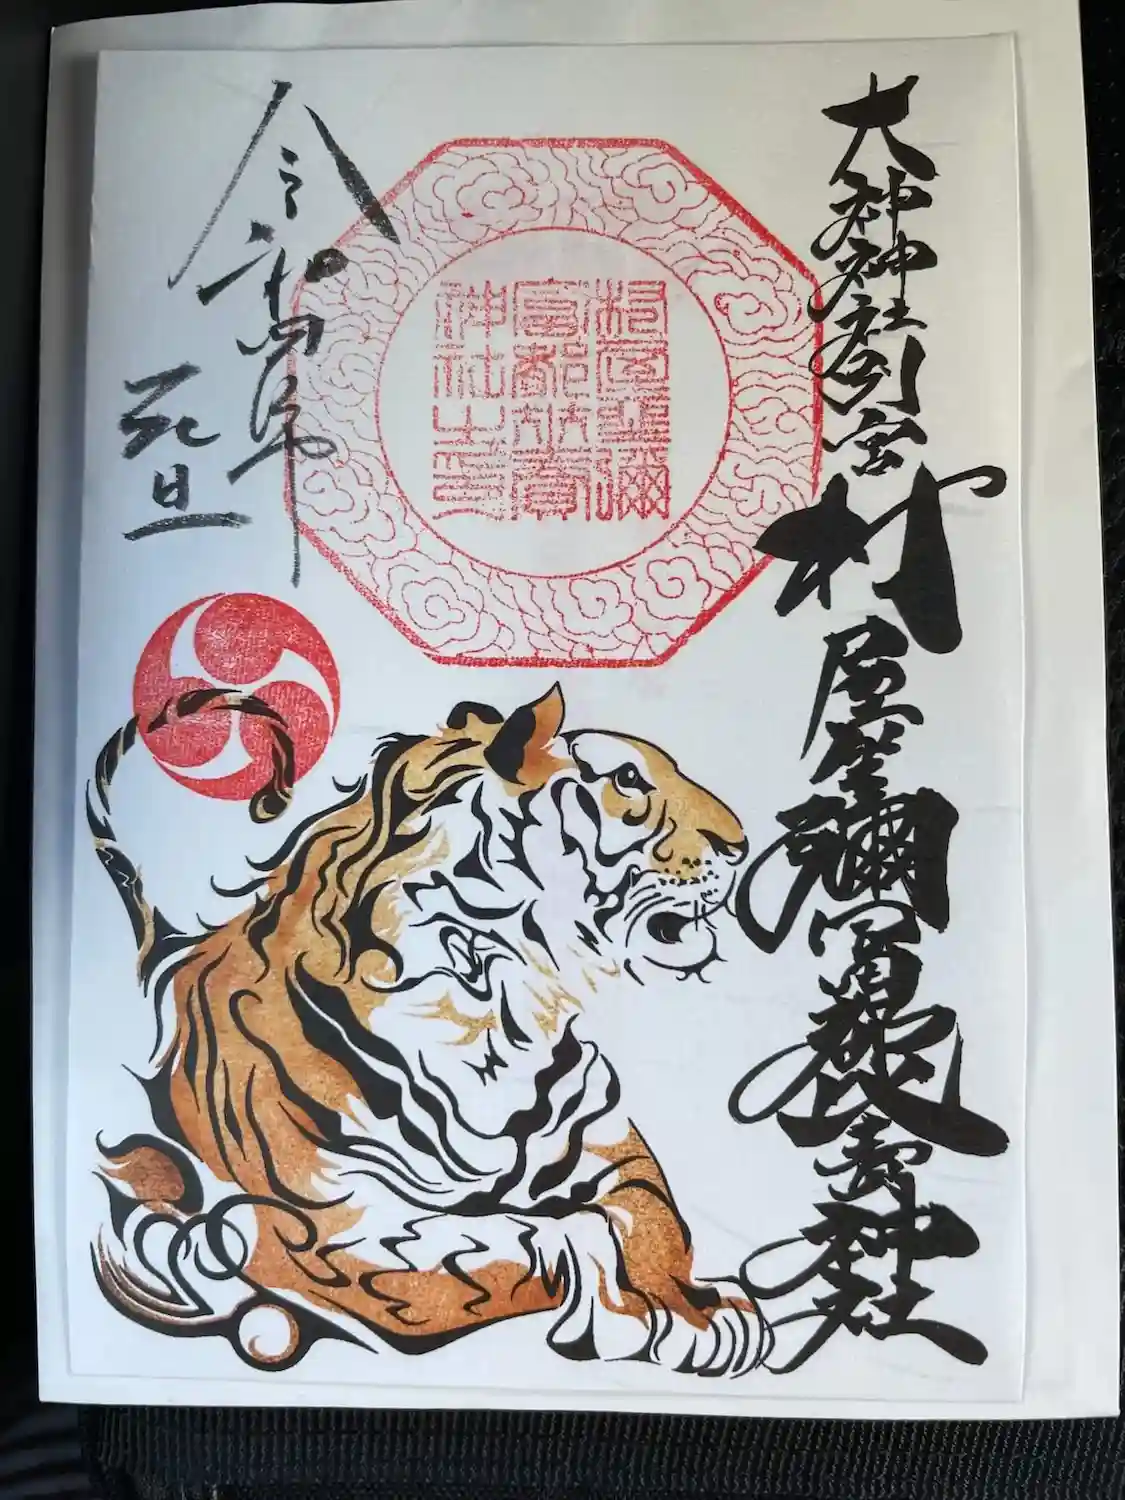 大神神社別宮村屋坐彌冨都比賣神社
村屋坐彌
冨都比賣
神社之印
令和四年
元旦